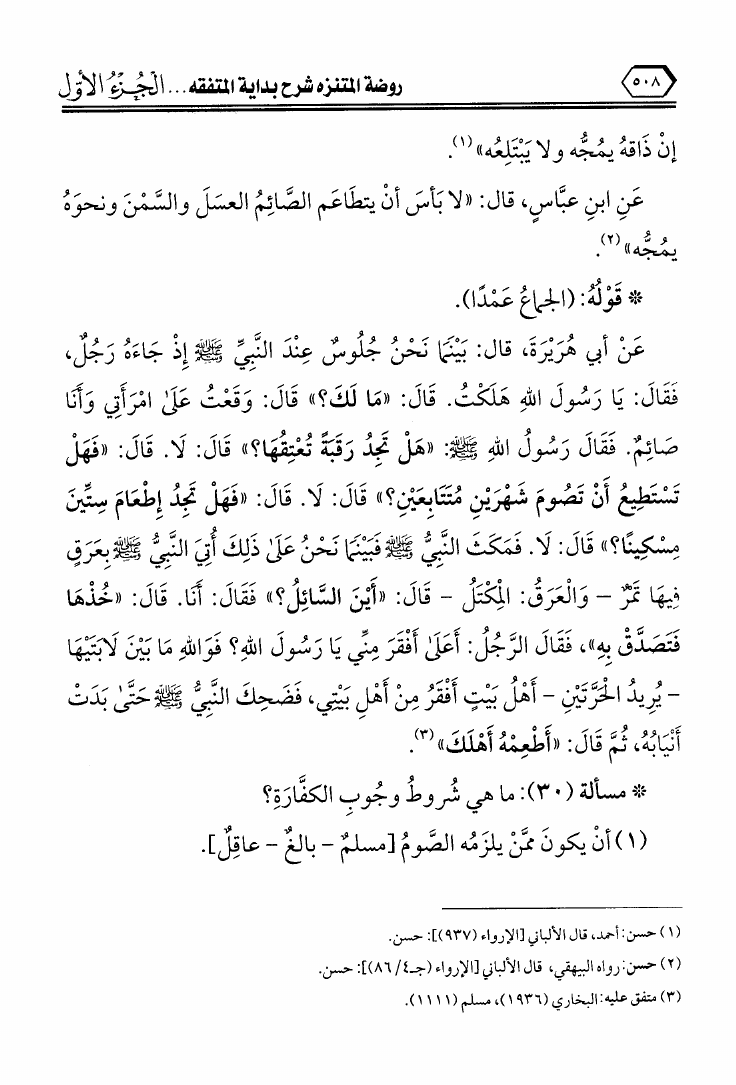 ٥٠٨ روضة المتنزه شرح بداية المتفقه... الْجُزْءُ الأَوَّل
إنْ ذَاقهُ يمُجُّه ولا يَبْتَلِعُه» (١).
عَنِ ابنِ عبَّاسٍ، قال: «لا بَأسَ أنْ يتطَاعَم الصَّائِمُ العسَلَ والسَّمْنَ ونحوَهُ
يمُجُّه» (٢).
* قَوْلُهُ: (الجماعُ عَمْدًا).
عَنْ أبي هُرَيْرَةَ، قال: بَيْنَمَا نَحْنُ جُلُوسٌ عِنْدَ النَّبِيِّ ﷺ إِذْ جَاءَهُ رَجُلٌ،
فَقَالَ: يَا رَسُولَ اللهِ هَلَكْتُ. قَالَ: «مَا لَكَ؟» قَالَ: وَقَعْتُ عَلَى امْرَأَتِي وَأَنَا
صَائِمٌ. فَقَالَ رَسُولُ اللهِ ﷺ: «هَلْ تَجِدُ رَقَبَةً تُعْتِقُهَا؟» قَالَ: لَا. قَالَ: «فَهَلْ
تَسْتَطِيعُ أَنْ تَصُومَ شَهْرَيْنِ مُتَتَابِعَيْنِ؟» قَالَ: لَا. قَالَ: «فَهَلْ تَجِدُ إِطْعَامَ سِتِّينَ
مِسْكِينًا؟» قَالَ: لَا. فَمَكَثَ النَّبِيُّ ﷺ فَبَيْنَمَا نَحْنُ عَلَى ذَلِكَ أُتِيَ النَّبِيُّ ﷺ بِعَرَقٍ
فِيهَا تَمْرٌ - وَالْعَرَقُ: الْمِكْتَلُ - قَالَ: «أَيْنَ السَّائِلُ؟» فَقَالَ: أَنَا. قَالَ: «خُذْهَا
فَتَصَدَّقْ بِهِ»، فَقَالَ الرَّجُلُ: أَعَلَى أَفْقَرَ مِنِّي يَا رَسُولَ اللهِ؟ فَوَاللهِ مَا بَيْنَ لَابَتَيْهَا
- يُرِيدُ الْحَرَّتَيْنِ - أَهْلُ بَيْتٍ أَفْقَرُ مِنْ أَهْلِ بَيْتِي، فَضَحِكَ النَّبِيُّ ﷺ حَتَّى بَدَتْ
أَنْيَابُهُ، ثُمَّ قَالَ: «أَطْعِمْهُ أَهْلَكَ» (٣).
* مسألة (٣٠): ما هي شُروطُ وجُوبِ الكفَّارَةِ؟
(١) أنْ يكونَ ممَّنْ يلزَمُه الصَّومُ [مسلمٌ - بالغٌ - عاقِلٌ].
(١) حسن: أحمد، قال الألباني [الإرواء (٩٣٧)]: حسن.
(٢) حسن: رواه البيهقي، قال الألباني [الإرواء (جـ٤/ ٨٦)]: حسن.
(٣) متفق عليه: البخاري (١٩٣٦)، مسلم (١١١١).